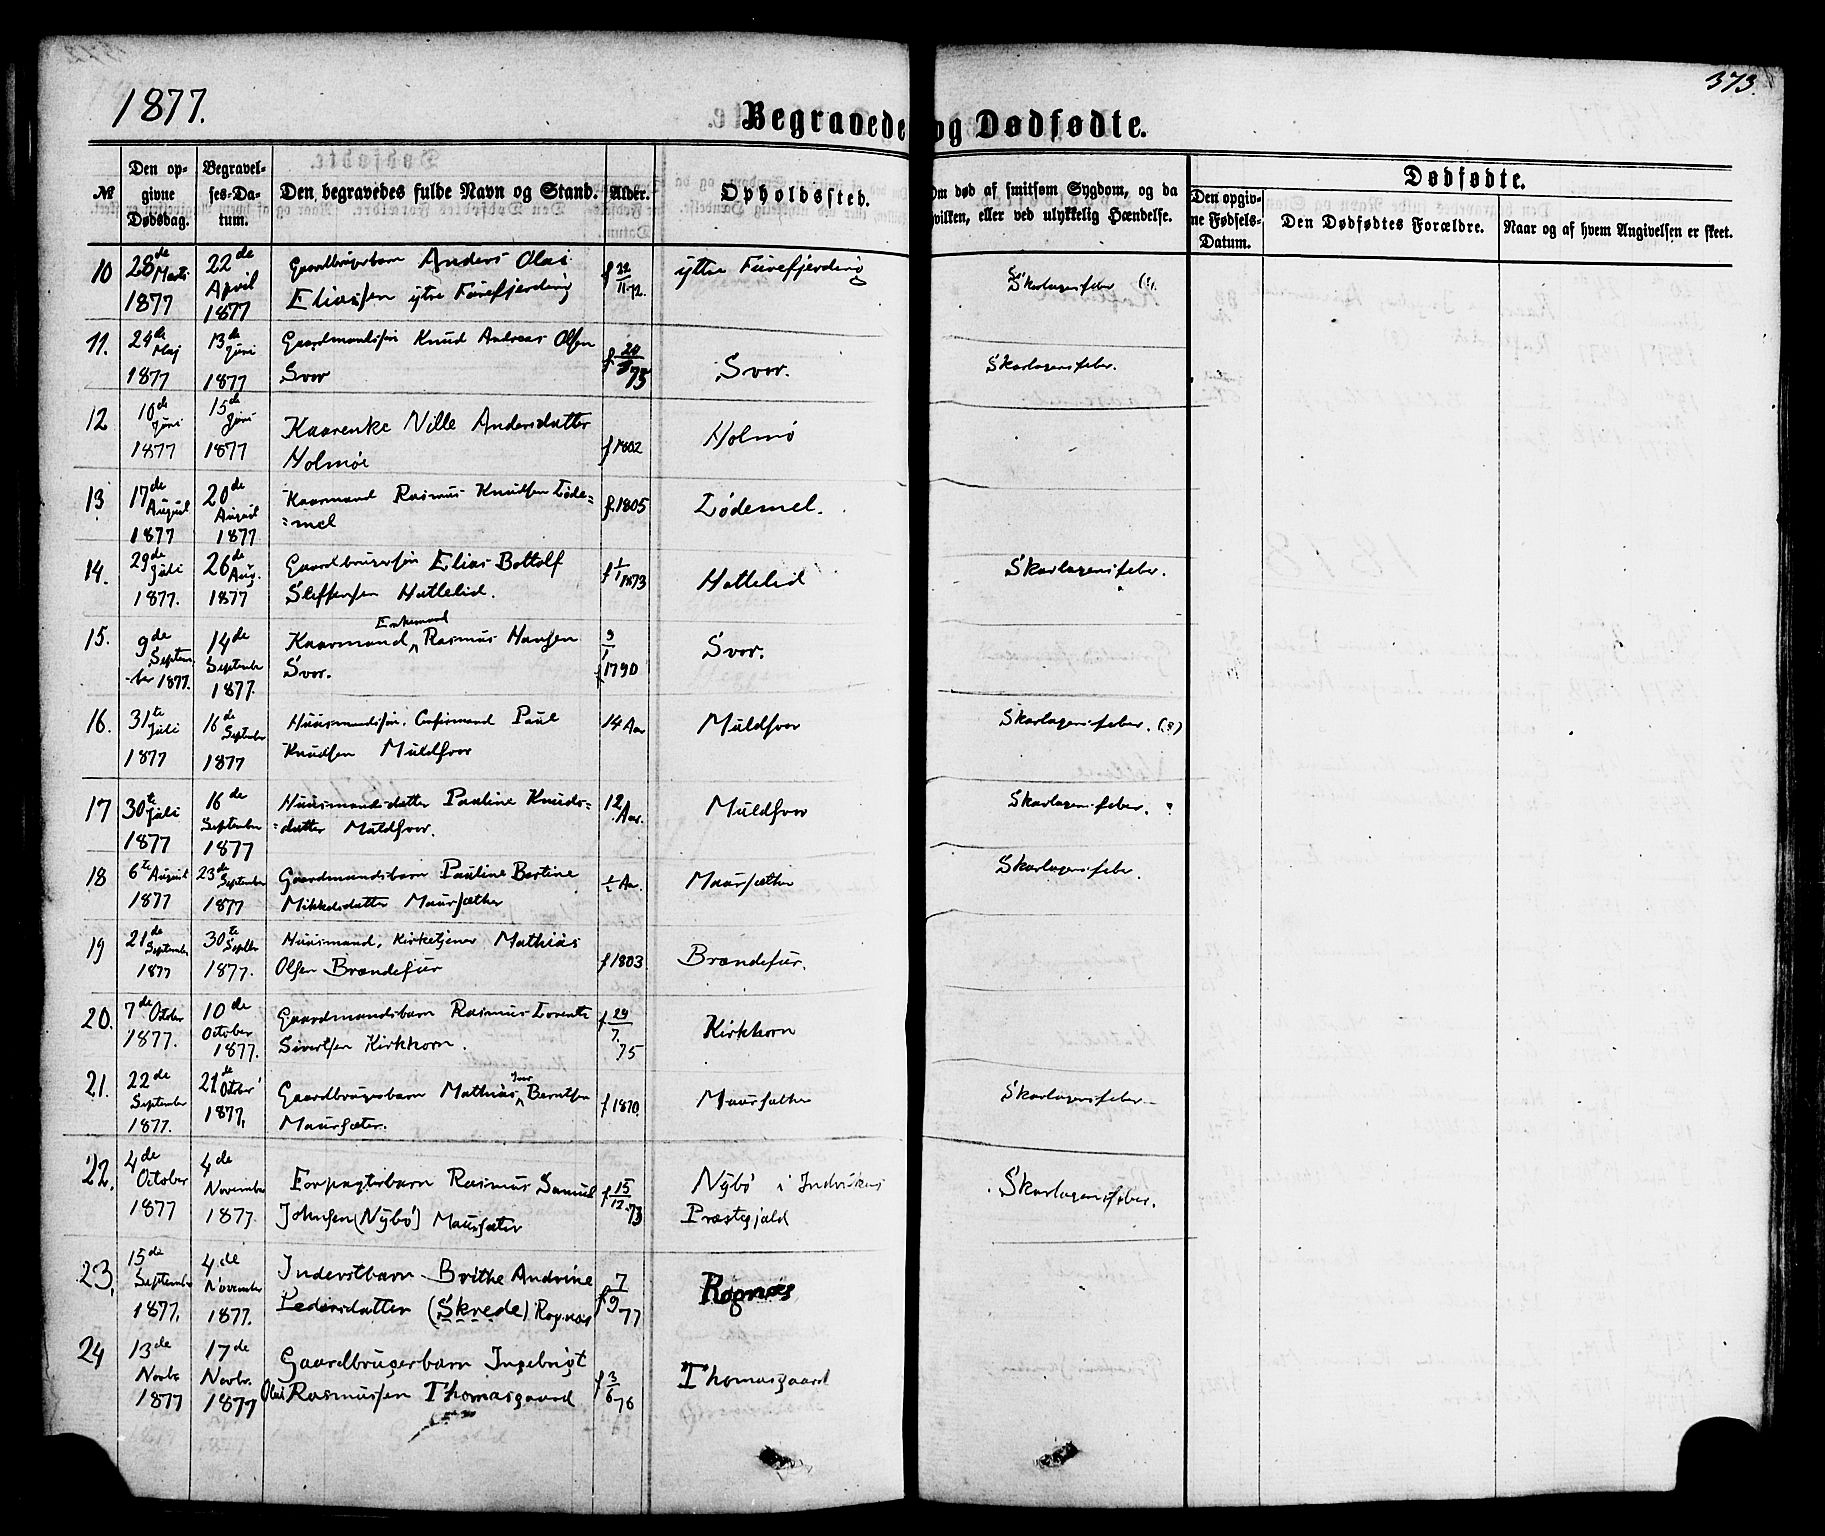 373.
1877.
Begravede og Dødfødte.
№ Den opgivne Dødsdag. Begravelses-Datum. Den begravedes fulde Navn og Stand. Alder. Opholdssted. Om død af smitsom Sygdom, og da hvilken, eller ved ulykkelig Hændelse. Den opgivne Fødsels-Datum. Dødfødte. Den Dødfødtes Forældre. Naar og af hvem Angivelsen er skeet.
10 28de Marts 1877 22de April 1877 Gaardbrugerbarn Anders Olai f 22/11.72. ytre Furefjerding Skarlagensfeber
Eliassen ytre Furefjerding
11. 24de Maj 1877 13de Juni 1877 Gaardmandssøn Knud Andreas Olsen f. 75 Svor. Skarlagensfeber.
Svor
12 10de Juni 1877 15de Juni 1877 Kaarenke Nille Andersdatter f 1802 Holmö
Holmöe
13 17de August 1877 20de August 1877 Kaarmand Rasmus Knudsen Løde= f. 1805 Lødemel.
=mel
14. 29de Juli 1877. 26de Aug. 1877 Gaardbrugersøn Elias Bottolf f 1/1 1873 Hattelid Skarlagensfeber.
Steffensen Hattelid.
15. 9de September 1877. 14de September 1877. Kaarmand, Enkemand Rasmus Hansen 9/1 f 1790 Svor.
Svor.
16. 31te Juli 1877 16de September 1877 Huusmandssøn, Confirmand Paul 14 Aar Muldsvor Skarlagensfeber. (?)
Knudsen Muldsvor
17 30te Juli 1877 16de September 1877 Huusmandsdatter Pauline Knuds= 12 Aar. Muldsvor Skarlagensfeber. ?
=datter Muldsvor.
18 6te August 1877 23de September 1877 Gaardmandsbarn Pauline Bertine ½ Aar. Maursæther Skarlagensfeber.
Mikkelsdatter Maursæther
19 21de September 1877 30te Septbr 1877. Huusmand, Kirketjener Mathias f 1803 Brændefur.
Olsen Brændefur
20. 7de October 1877. 10de October 1877. Gaardmandsbarn Rasmus Lorents f 29/7. 75 Kirkhorn
Sivertsen Kirkhorn.
21. 22de September 1877. 21de October 1877. Gaardbrugerbarn Mathias Iver Berntsen f 1870. Maursæther Skarlagensfeber
Maursæter.
22. 4de October 1877 4de November 1877. Forpagterbarn Rasmus Samuel f 15/12.73 Nybö i Indvikens Skarlagensfeber.
Johnsen (Nybö) Maursæter Præstegjald
23. 15de September 1877. 4de November 1877. Inderstbarn Brithe Andrine f 7/9 77 Rognæs
Pedersdatter (Skrede) Rognæs
24 13de Novbr 1877 17de Novbr. 1877 Gaardbrugerbarn Ingebrigt f 3/6 76 Thomasgaard
Olai Rasmussen Thomasgaard